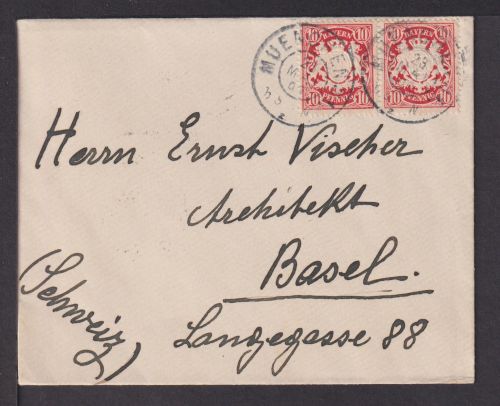 BAYERN BAYERN
10 10 10 10
PFENNIG PFENNIG
Herrn Ernst Vischer
Architekt
Basel.
(Schweiz)
Langegasse 88